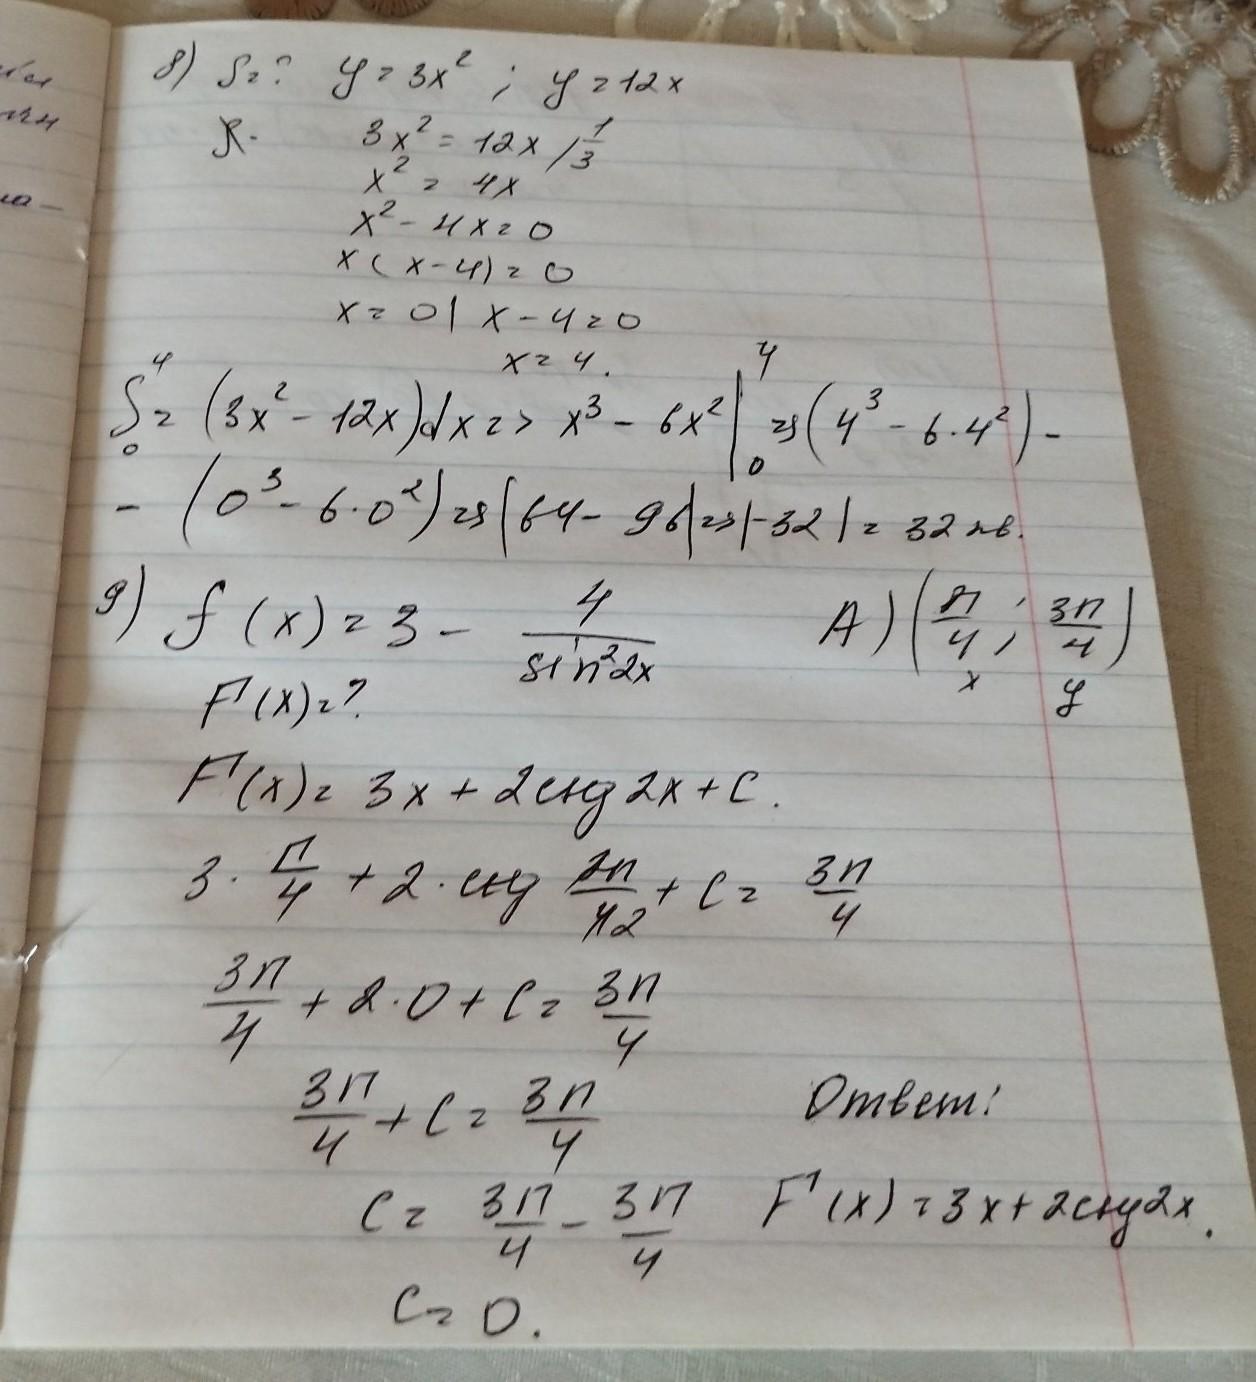 8) S=? y=3x² ; y=12x
3x²=12x /⅓
x²=4x
x²-4x=0
x(x-4)=0
x=0| x-4=0
x=4.
∫₀⁴=(3x²-12x)dx=> x³-6x²|₀⁴ =>(4³-6·4²)-
-(0³-6·0²)=>|64-96|=>|-32|=32 кв.
9) f(x)=3- 4/sin²2x A) (π/4; 3π/4)
x y
F(x)=?
F(x)=3x+2ctg2x+C.
3·π/4+2·ctg 2π/42+C= 3π/4
3π/4+2·0+C= 3π/4
3π/4+C= 3π/4 Ответ:
C= 3π/4-3π/4 F(x)=3x+2ctg2x.
C=0.